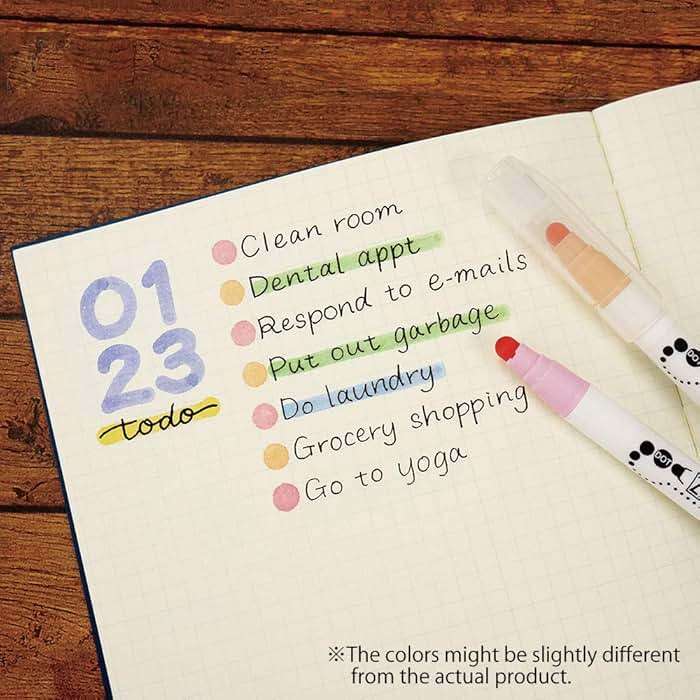 01
23
todo
Clean room
Dental appt
Respond to e-mails
Put out garbage
Do laundry
Grocery shopping
Go to yoga
DOT
※The colors might be slightly different
from the actual product.